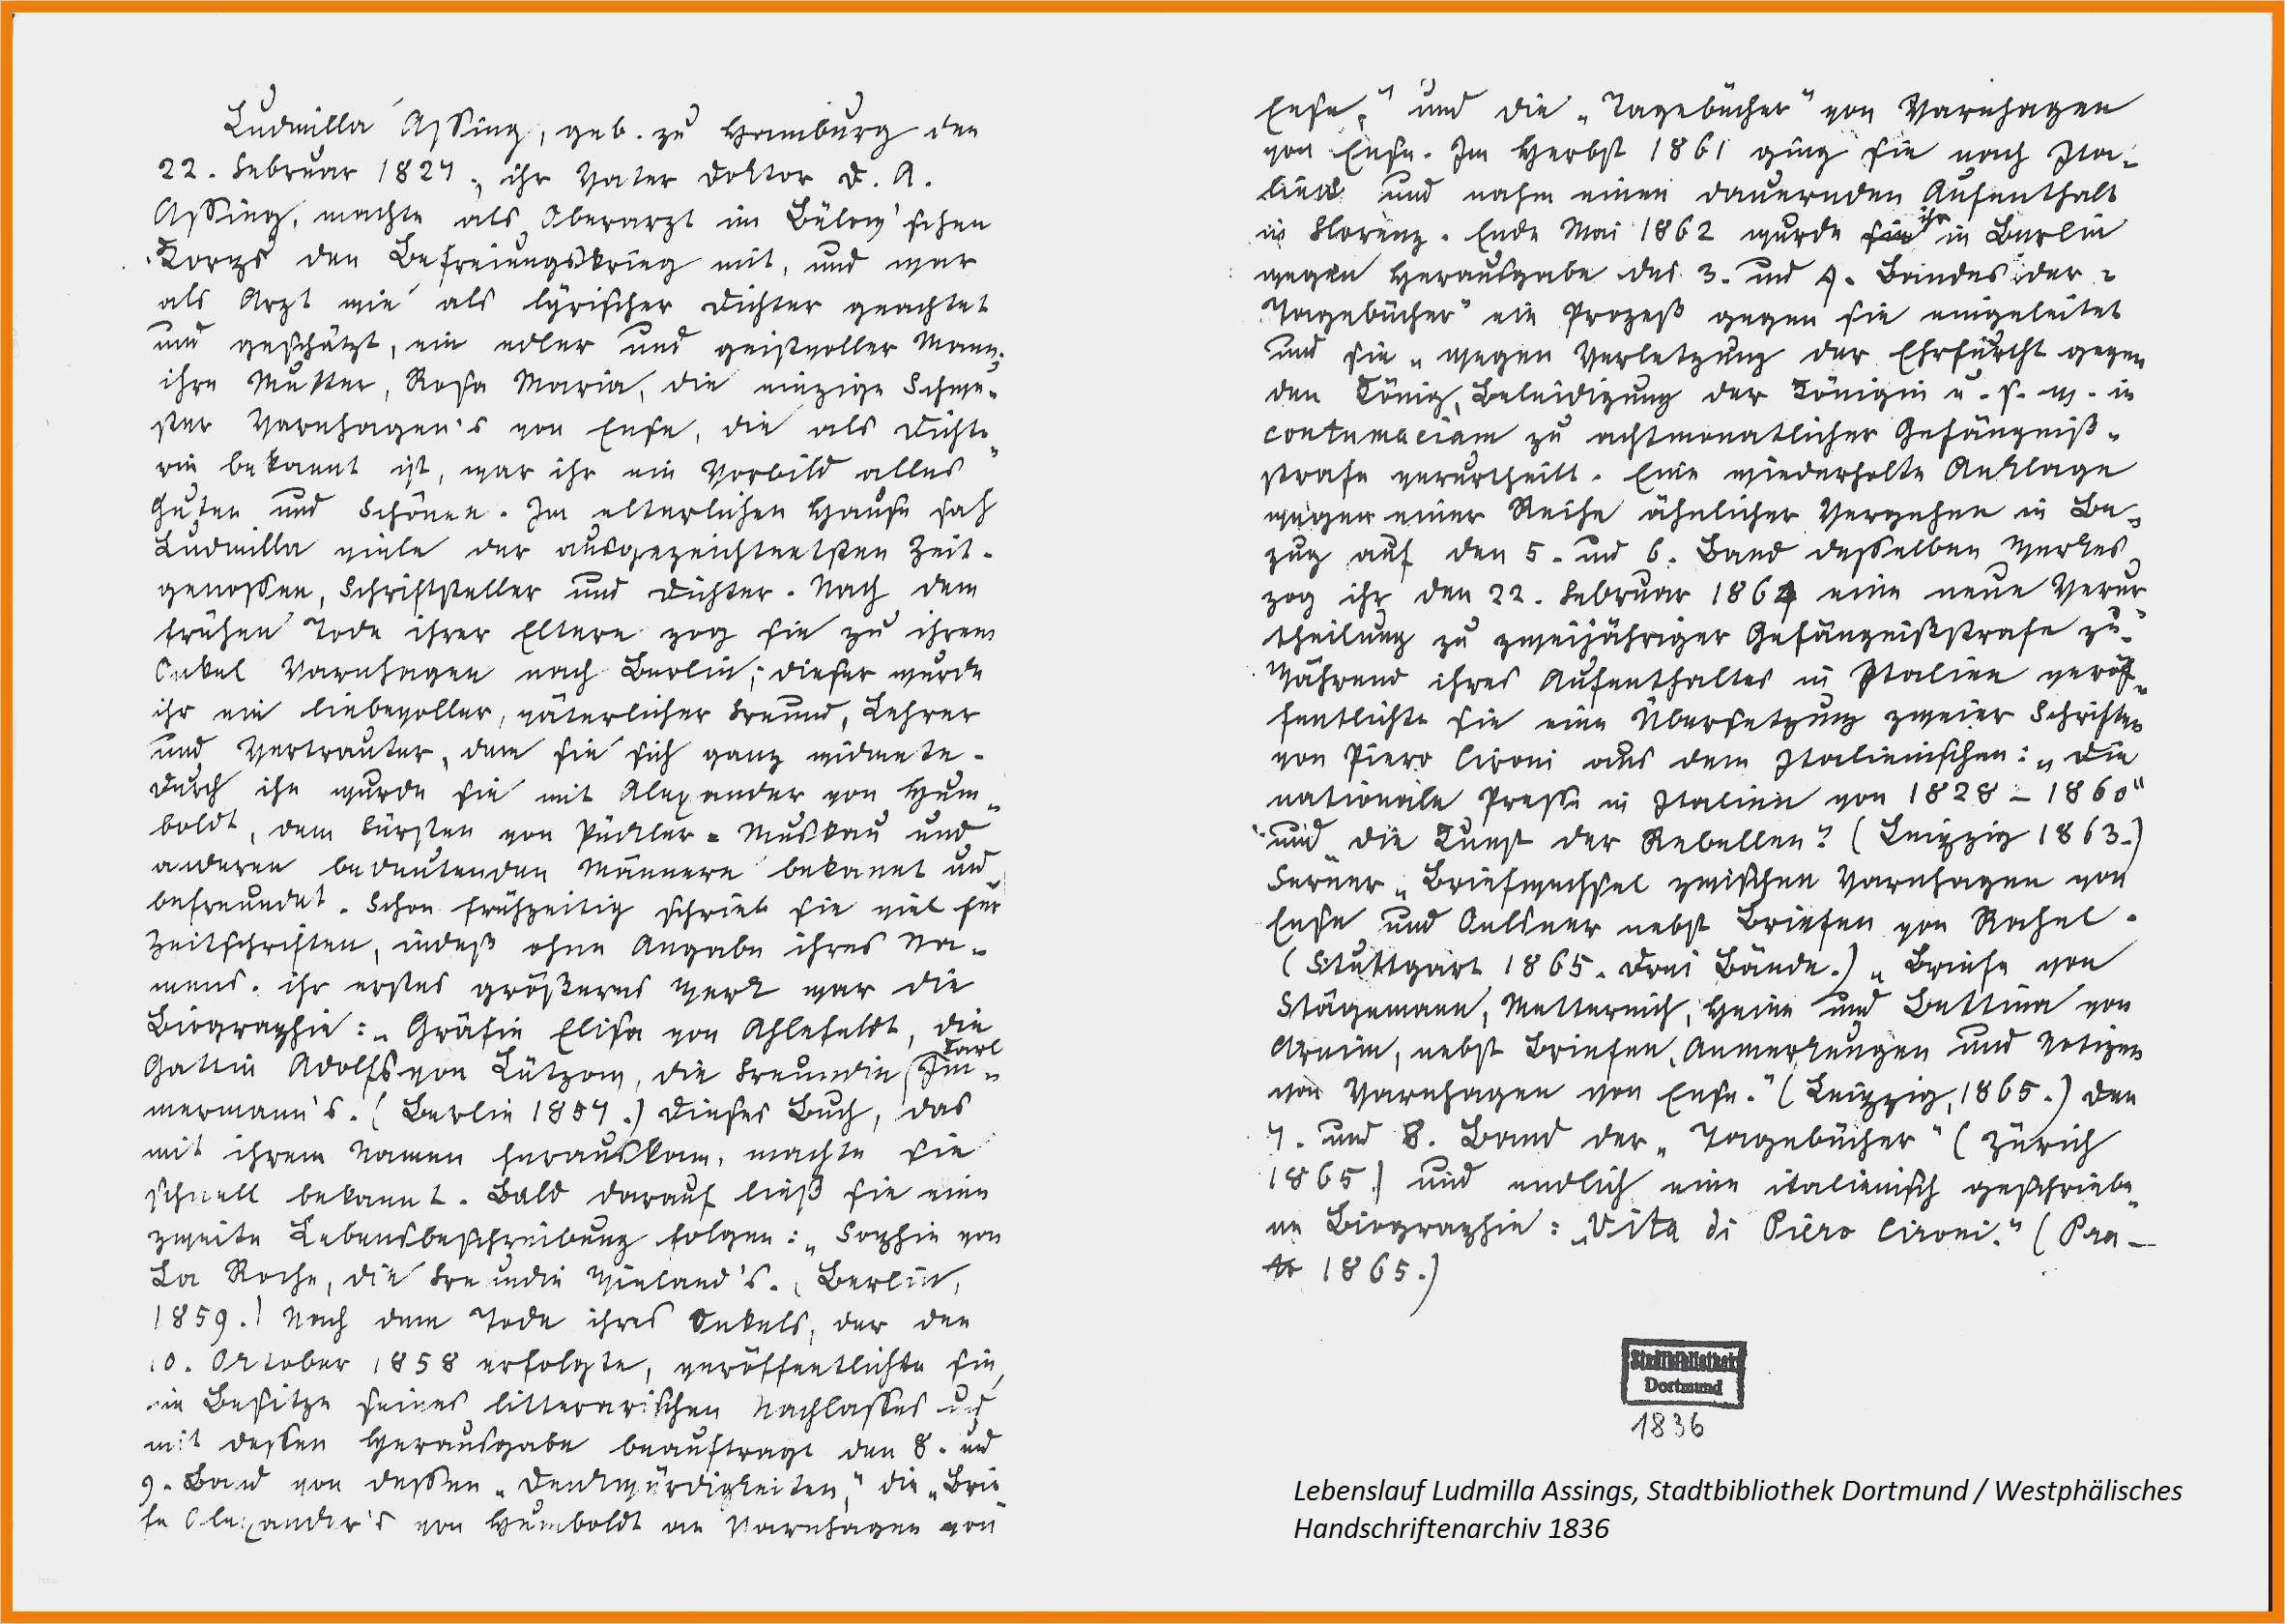 Ludmilla Assing, geb. zu Hamburg den
22. Februar 1827, ihr Vater Doktor D. A.
Assing, machte als Oberarzt im Bülow'schen
Korps den Befreiungskrieg mit, und war
als Arzt wie als lyrischer Dichter geachtet
und geschätzt, ein edler und geistvoller Mann;
ihre Mutter, Rosa Maria, die einzige Schwe-
ster Varnhagen's von Ense, die als Dichte-
rin bekannt ist, war ihr ein Vorbild alles
Guten und Schönen. Im elterlichen Hause sah
Ludmilla viele der ausgezeichnetsten Zeit-
genossen, Schriftsteller und Dichter. Nach dem
frühen Tode ihrer Eltern zog sie zu ihrem
Onkel Varnhagen nach Berlin; dieser wurde
ihr ein liebevoller, väterlicher Freund, Lehrer
und Vertrauter, dem sie sich ganz widmete.
Durch ihn wurde sie mit Alexander von Hum-
boldt, dem Fürsten von Pückler-Muskau und
anderen bedeutenden Männern bekannt und
befreundet. Schon frühzeitig schrieb sie viel für
Zeitschriften, indeß ohne Angabe ihres Na-
mens. ihr erstes größeres Werk war die
Biographie: „Gräfin Elisa von Ahlefeldt, die
Gattin Adolfs von Lützow, die Freundin Karl Im-
mermann's. (Berlin 1857.) Dieses Buch, das
mit ihrem Namen herauskam, machte sie
schnell bekannt. Bald darauf ließ sie eine
zweite Lebensbeschreibung folgen: „Sophie von
La Roche, die Freundin Wieland's. (Berlin,
1859.) Nach dem Tode ihres Onkels, der den
10. Oktober 1858 erfolgte, veröffentlichte sie,
im Besitze seines litterarischen Nachlasses und
mit dessen Herausgabe beauftragt den 8. und
9. Band von dessen „Denkwürdigkeiten," die „Brie
fe Alexander's von Humboldt an Varnhagen von
Ense," und die „Tagebücher" von Varnhagen
von Ense. Im Herbst 1861 ging sie nach Ita-
lien und nahm einen dauernden Aufenthalt
in Florenz. Ende Mai 1862 wurde ihr in Berlin
wegen Herausgabe des 3. und 4. Bandes der „
Tagebücher" ein Prozeß gegen sie eingeleitet
und sie „wegen Verletzung der Ehrfurcht gegen
den König, Beleidigung der Königin u. s. w. in
contumaciam zu achtmonatlicher Gefängniß-
strafe verurtheilt. Eine wiederholte Anklage
wegen einer Reihe ähnlicher Vergehen in Be-
zug auf den 5. und 6. Band desselben Werkes
zog ihr den 22. Februar 1864 eine neue Verur-
theilung zu zweijähriger Gefängnißstrafe zu.
Während ihres Aufenthaltes in Italien veröf-
fentlichte sie eine Übersetzung zweier Schriften
von Piero Cironi aus dem Italienischen: „Die
nationale Presse in Italien von 1828 – 1860"
und „Die Kunst der Rebellen". (Leipzig 1863.)
Ferner „Briefwechsel zwischen Varnhagen von
Ense und Oelsner nebst Briefen von Rahel.
(Stuttgart 1865. Drei Bände.) „Briefe von
Stägemann, Metternich, Heine und Bettina von
Arnim, nebst Briefen, Anmerkungen und Notizen
von Varnhagen von Ense." (Leipzig, 1865.) den
7. und 8. Band der „Tagebücher" (Zürich
1865.) und endlich eine italienisch geschriebe-
ne Biographie: „Vita di Piero Cironi." (Pra-
to 1865.)
Stadtbibliothek
Dortmund
1836
Lebenslauf Ludmilla Assings, Stadtbibliothek Dortmund / Westphälisches
Handschriftenarchiv 1836